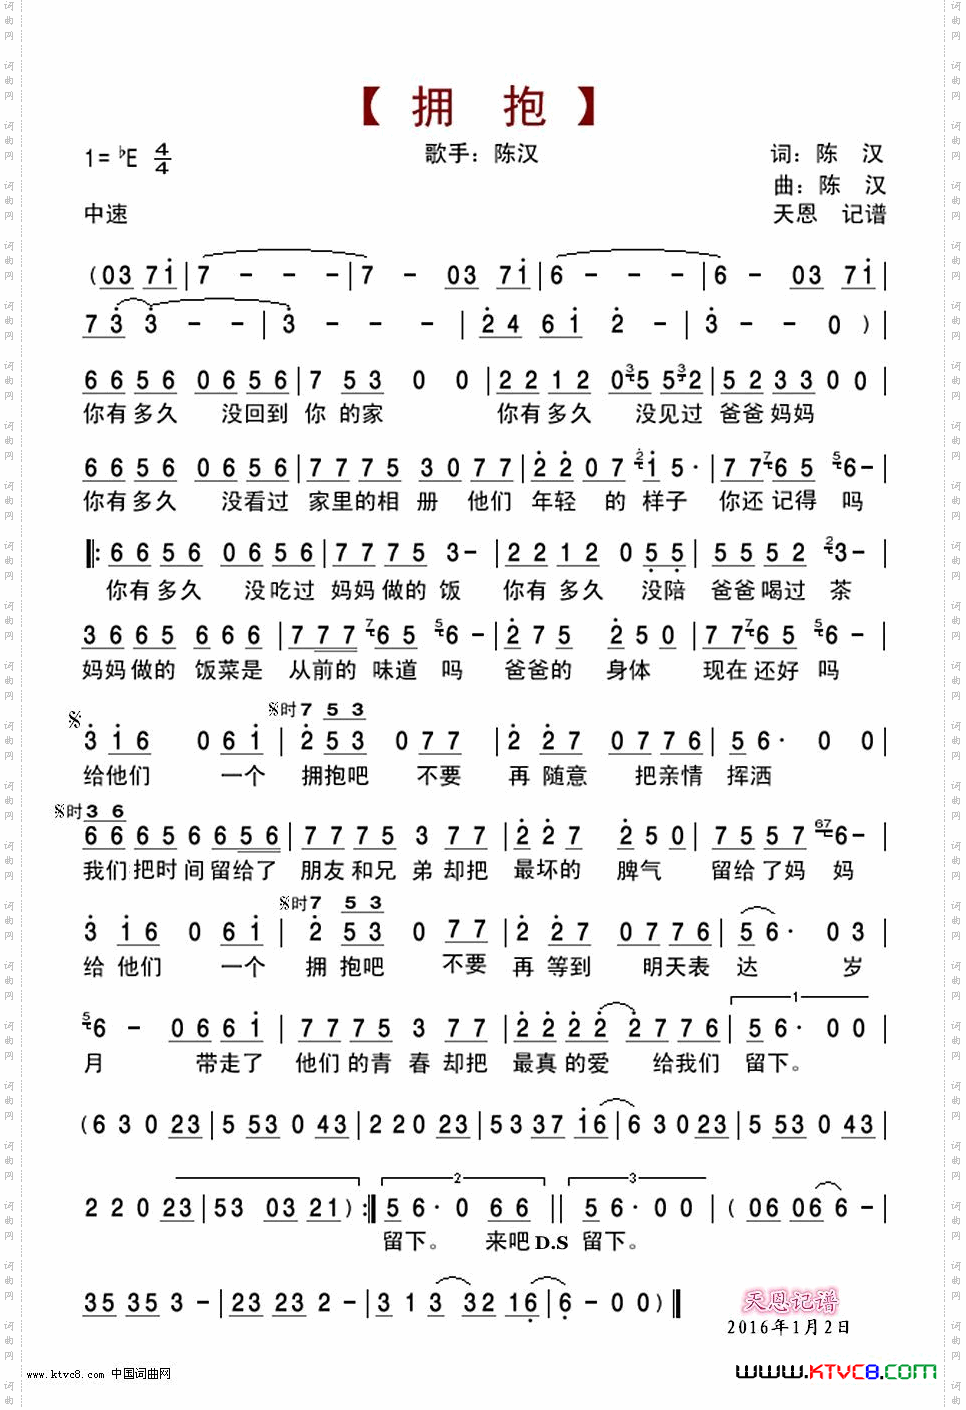 【 拥 抱 】
1= ♭E 4/4 歌手：陈汉 词：陈 汉
曲：陈 汉
中速 天恩 记谱
( 03 71 | 7 - - - | 7 - 03 71 | 6 - - - | 6 - 03 71 |
7 3 3 - - | 3 - - - | 2 4 6 1 2 - | 3 - - 0 ) |
6 6 5 6 0 6 5 6 | 7 5 3 0 0 | 2 2 1 2 0 3 5 5 3 2 | 5 2 3 3 0 0 |
你有多久 没回到 你 的家 你有多久 没见过 爸爸妈妈
6 6 5 6 0 6 5 6 | 7 7 7 5 3 0 7 7 | 2 2 0 7 2 1 5 · | 7 7 7 6 5 5 6 - |
你有多久 没看过 家里的相 册 他们 年轻 的 样子 你还记得 吗
‖: 6 6 5 6 0 6 5 6 | 7 7 7 5 3 - | 2 2 1 2 0 5 5 | 5 5 5 2 2 3 - |
你有多久 没吃过 妈妈做的 饭 你有多久 没陪 爸爸喝过 茶
3 6 6 5 6 6 6 | 7 7 7 7 6 5 5 6 - | 2 7 5 2 5 0 | 7 7 7 6 5 5 6 - |
妈妈做的 饭菜是 从前的 味道 吗 爸爸的 身体 现在还好吗
𝄋 𝄋时 7 5 3
3 1 6 0 6 1 | 2 5 3 0 7 7 | 2 2 7 0 7 7 6 | 5 6 · 0 0 |
给他们 一个 拥抱吧 不要 再 随意 把亲情 挥洒
𝄋时 3 6
6 6 6 5 6 6 5 6 | 7 7 7 5 3 7 7 | 2 2 7 2 5 0 | 7 5 5 7 67 6 - |
我们把时间留给了 朋友和兄 弟却把 最坏的 脾气 留给了妈 妈
𝄋时 7 5 3
3 1 6 0 6 1 | 2 5 3 0 7 7 | 2 2 7 0 7 7 6 | 5 6 · 0 3 |
给他们 一个 拥 抱吧 不要 再 等到 明天表 达 岁
1
5 6 - 0 6 6 1 | 7 7 7 5 3 7 7 | 2 2 2 2 2 7 7 6 | 5 6 · 0 0 |
月 带走了 他们的青 春却把 最真的爱 给我们 留下。
( 6 3 0 23 | 5 53 0 43 | 2 2 0 23 | 53 37 16 | 6 3 0 23 | 5 53 0 43 |
2 3
2 2 0 23 | 53 03 21 ) :‖ 5 6 · 0 6 6 ‖ 5 6 · 0 0 | ( 06 06 6 - |
留下。 来吧 D.S 留下。
35 35 3 - | 23 23 2 - | 3 1 3 32 16 | 6 - 0 0 ) ‖
天恩记谱
2016年1月2日
www.ktvc8.com 中国词曲网
www.KTVC8.com